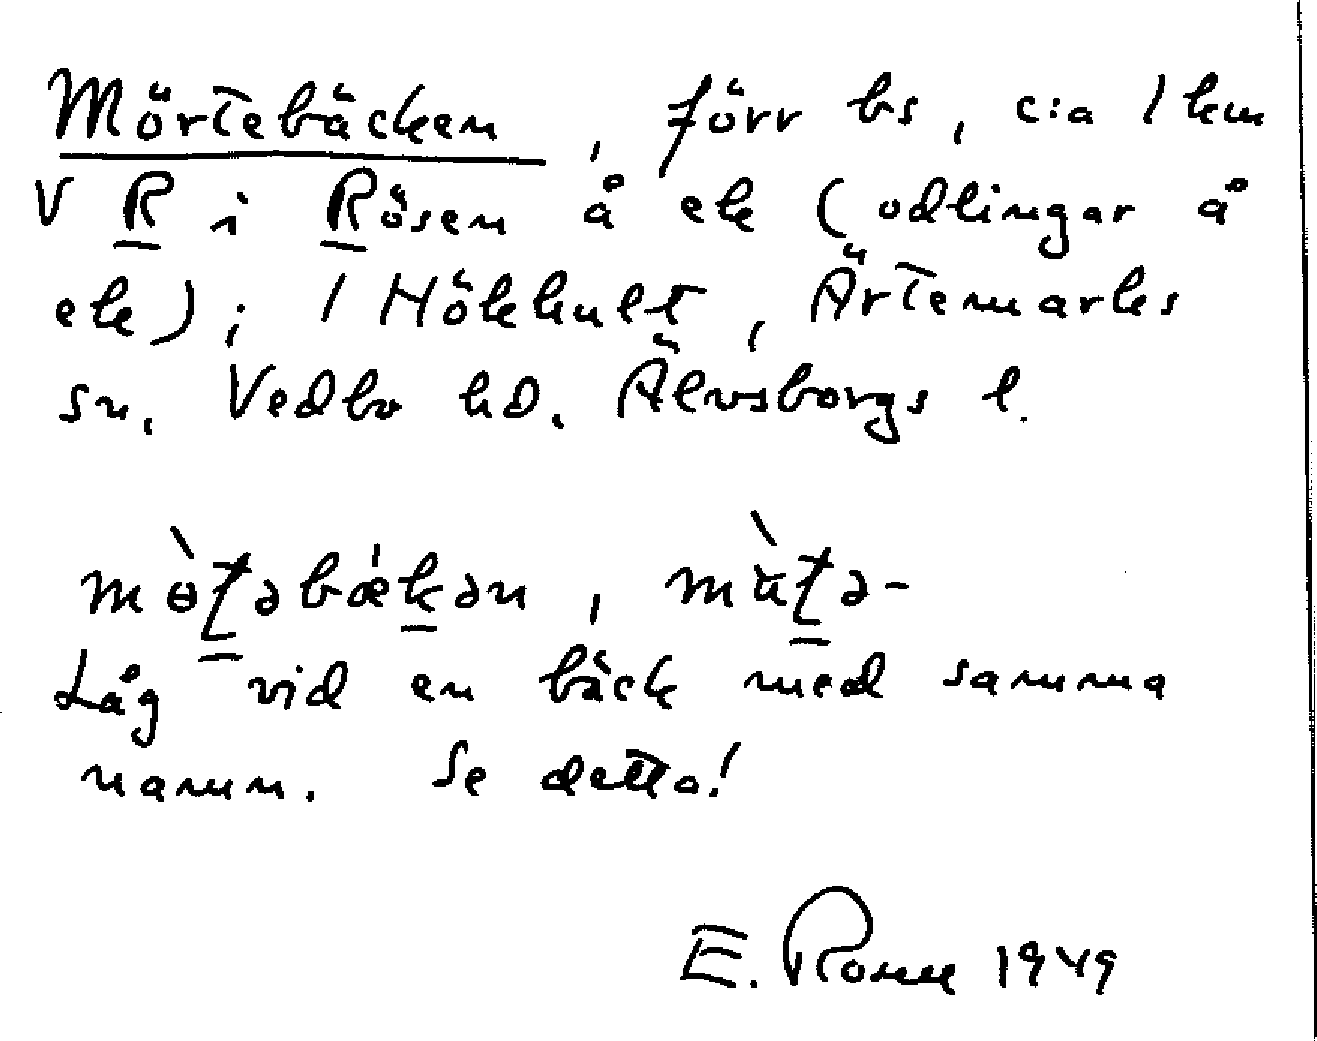 Mörtebäcken, förr bs, c:a 1 km
V R i Rösen å ek (odlingar å
ek); / Hökhult, Ärtemarks
sn, Vedbo hd. Älvsborgs l.
Låg vid en bäck med samma
namn. Se detta!
E. 1949